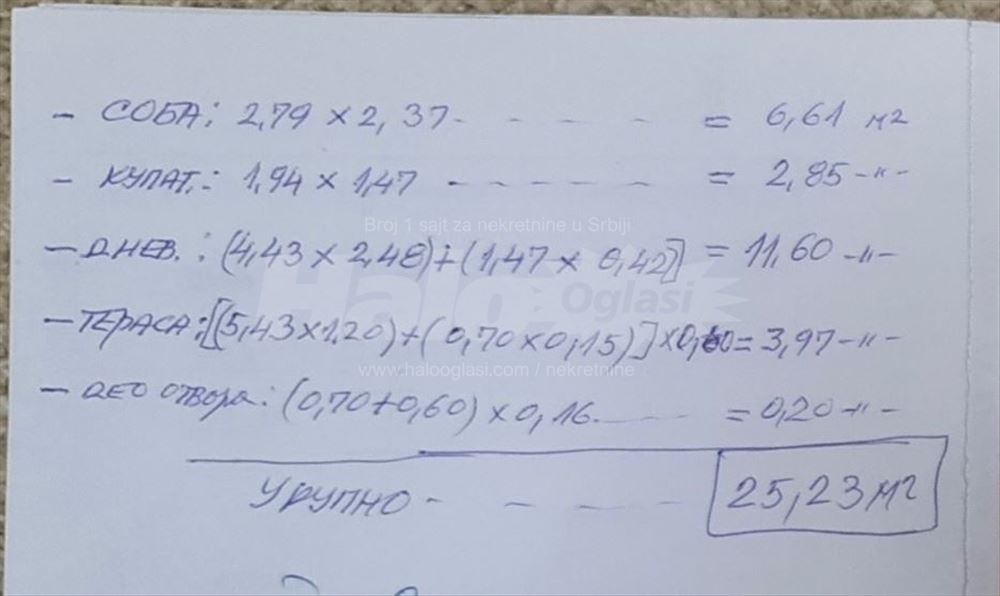 - СОБА: 2,79 x 2,37 - - - - - = 6,61 м2
- КУПАТ.: 1,94 x 1,47 - - - - - - = 2,85 -"-
Broj 1 sajt za nekretnine u Srbiji
- ДНЕВ.: (4,43 x 2,48) + (1,47 x 0,42] = 11,60 -"-
Halo Oglasi
- ТЕРАСА: [(5,43 x 1,20) + (0,70 x 0,15)] x 0,60 = 3,97 -"-
www.halooglasi.com / nekretnine
- ДЕО ОТВОРА: (0,70 + 0,60) x 0,16 - - - = 0,20 -"-
УКУПНО - - - - - 25,23 м2